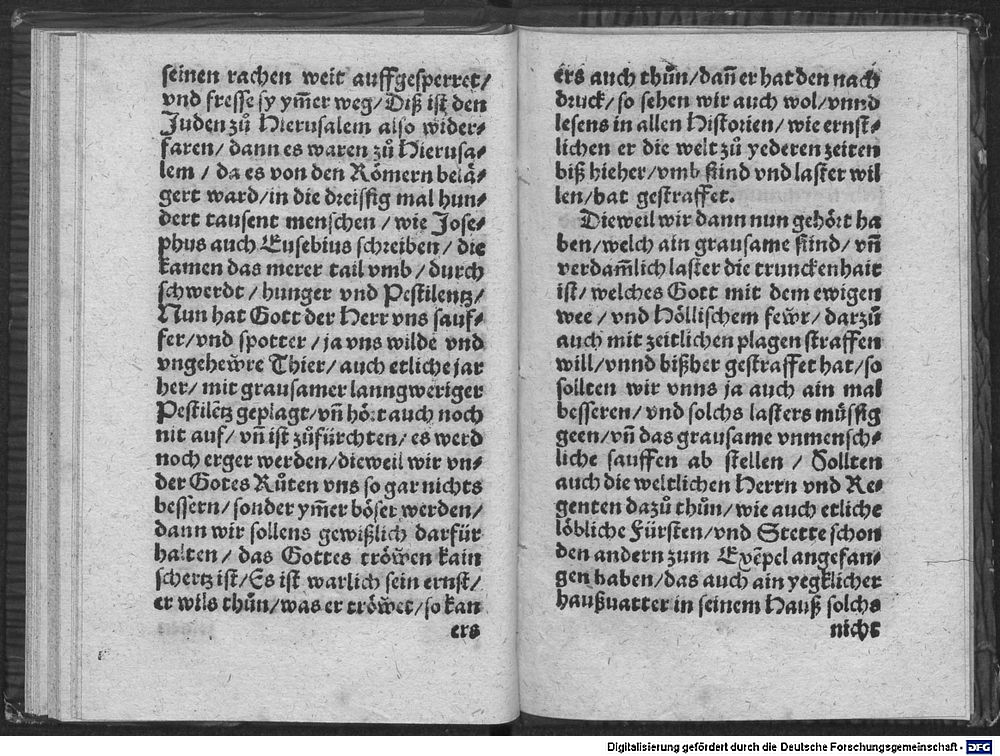 seinen rachen weit auffgesperret/
vnd fresse sy ym̃er weg/ Diß ist den
Juden zů Hierusalem also wider⸗
faren/ dann es waren zů Hierusa⸗
lem / da es von den Römern belä⸗
gert ward/ in die dreissig mal hun⸗
dert tausent menschen / wie Jose⸗
phus auch Eusebius schreiben / die
kamen das merer tail vmb / durch
schwerdt / hunger vnd Pestilentz/
Nun hat Gott der Herr vns sauf⸗
fer/ vnd spotter / ja vns wilde vnd
vngehewͤre Thier/ auch etliche jar
her/ mit grausamer lanngweriger
Pestilẽtz geplagt/ vñ hört auch noch
nit auf/ vñ ist zůfürchten/ es werd
noch erger werden/ dieweil wir vn⸗
der Gotes Růten vns so gar nichts
bessern/ sonder ym̃er böser werden/
dann wir sollens gewißlich darfür
halten/ das Gottes tröwen kain
schertz ist/ Es ist warlich sein ernst/
er wils thůn/ was er tröwet/ so kan
ers
ers auch thůn/ dañ er hat den nach
druck/ so sehen wir auch wol/ vnnd
lesens in allen Historien/ wie ernst⸗
lichen er die welt zů yederen zeiten
biß hieher/ vmb sünd vnd laster wil
len/ hat gestraffet.
Dieweil wir dann nun gehört ha
ben/ welch ain grausame sünd/ vñ
verdam̃lich laster die trunckenhait
ist/ welches Gott mit dem ewigen
wee / vnd Höllischem fewͤr/ darzů
auch mit zeitlichen plagen straffen
will/ vnnd bißher gestraffet hat/ so
sollten wir vnns ja auch ain mal
besseren/ vnd solchs lasters müssig
geen/ vñ das grausame vnmensch⸗
liche sauffen ab stellen / Sollten
auch die weltlichen Herrn vnd Re⸗
genten dazů thůn/ wie auch etliche
löbliche Fürsten/ vnd Stette schon
den andern zum Exẽpel angefan⸗
gen haben/ das auch ain yegklicher
haußuatter in seinem Hauß solchs
nicht
Digitalisierung gefördert durch die Deutsche Forschungsgemeinschaft - DFG